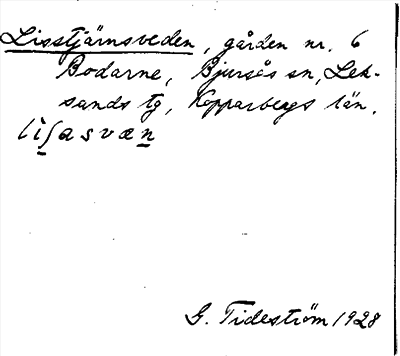 Lisstjärnsveden, gården nr. 6
Bodarne, Bjursås sn, Lek-
sands tg, Kopparbergs län.
li̠ʃasvæn̠
G. Tideström 1928